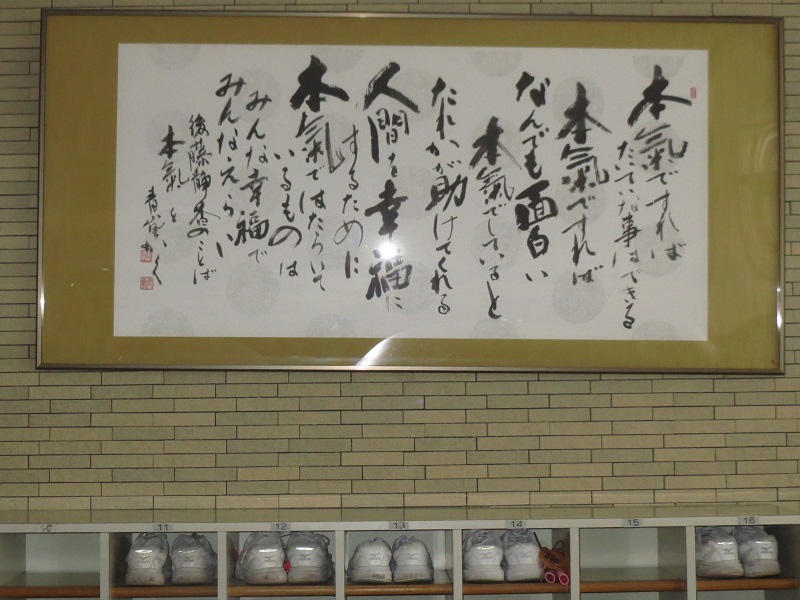 本氣ですれば
たいていな事はできる
本氣ですれば
なんでも面白い
本氣でしていると
たれかが助けてくれる
人間を幸福に
するために
本氣ではたらいて
いるものは
みんな幸福で
みんなえらい
後藤静香のことば
本氣を
11
12
13
14
15
16